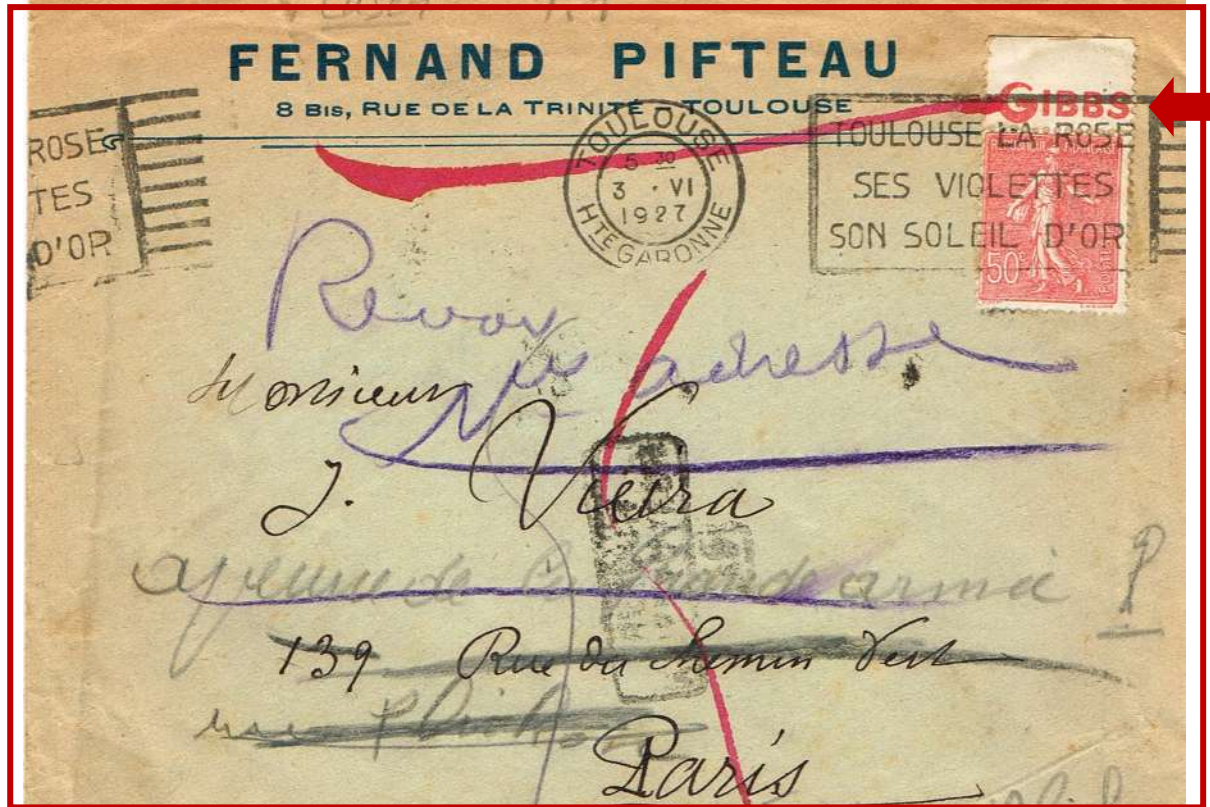 FERNAND PIFTEAU
8 BIS, RUE DE LA TRINITÉ - TOULOUSE
GIBBS
ROSE
TES
D'OR
TOULOUSE
5 30
3 · VI
1927
HTE GARONNE
TOULOUSE LA ROSE
SES VIOLETTES
SON SOLEIL D'OR
50c
adresse
Monsieur
J. Vieira
de la Grande armée
139 Rue du Chemin Vert
rue
Paris